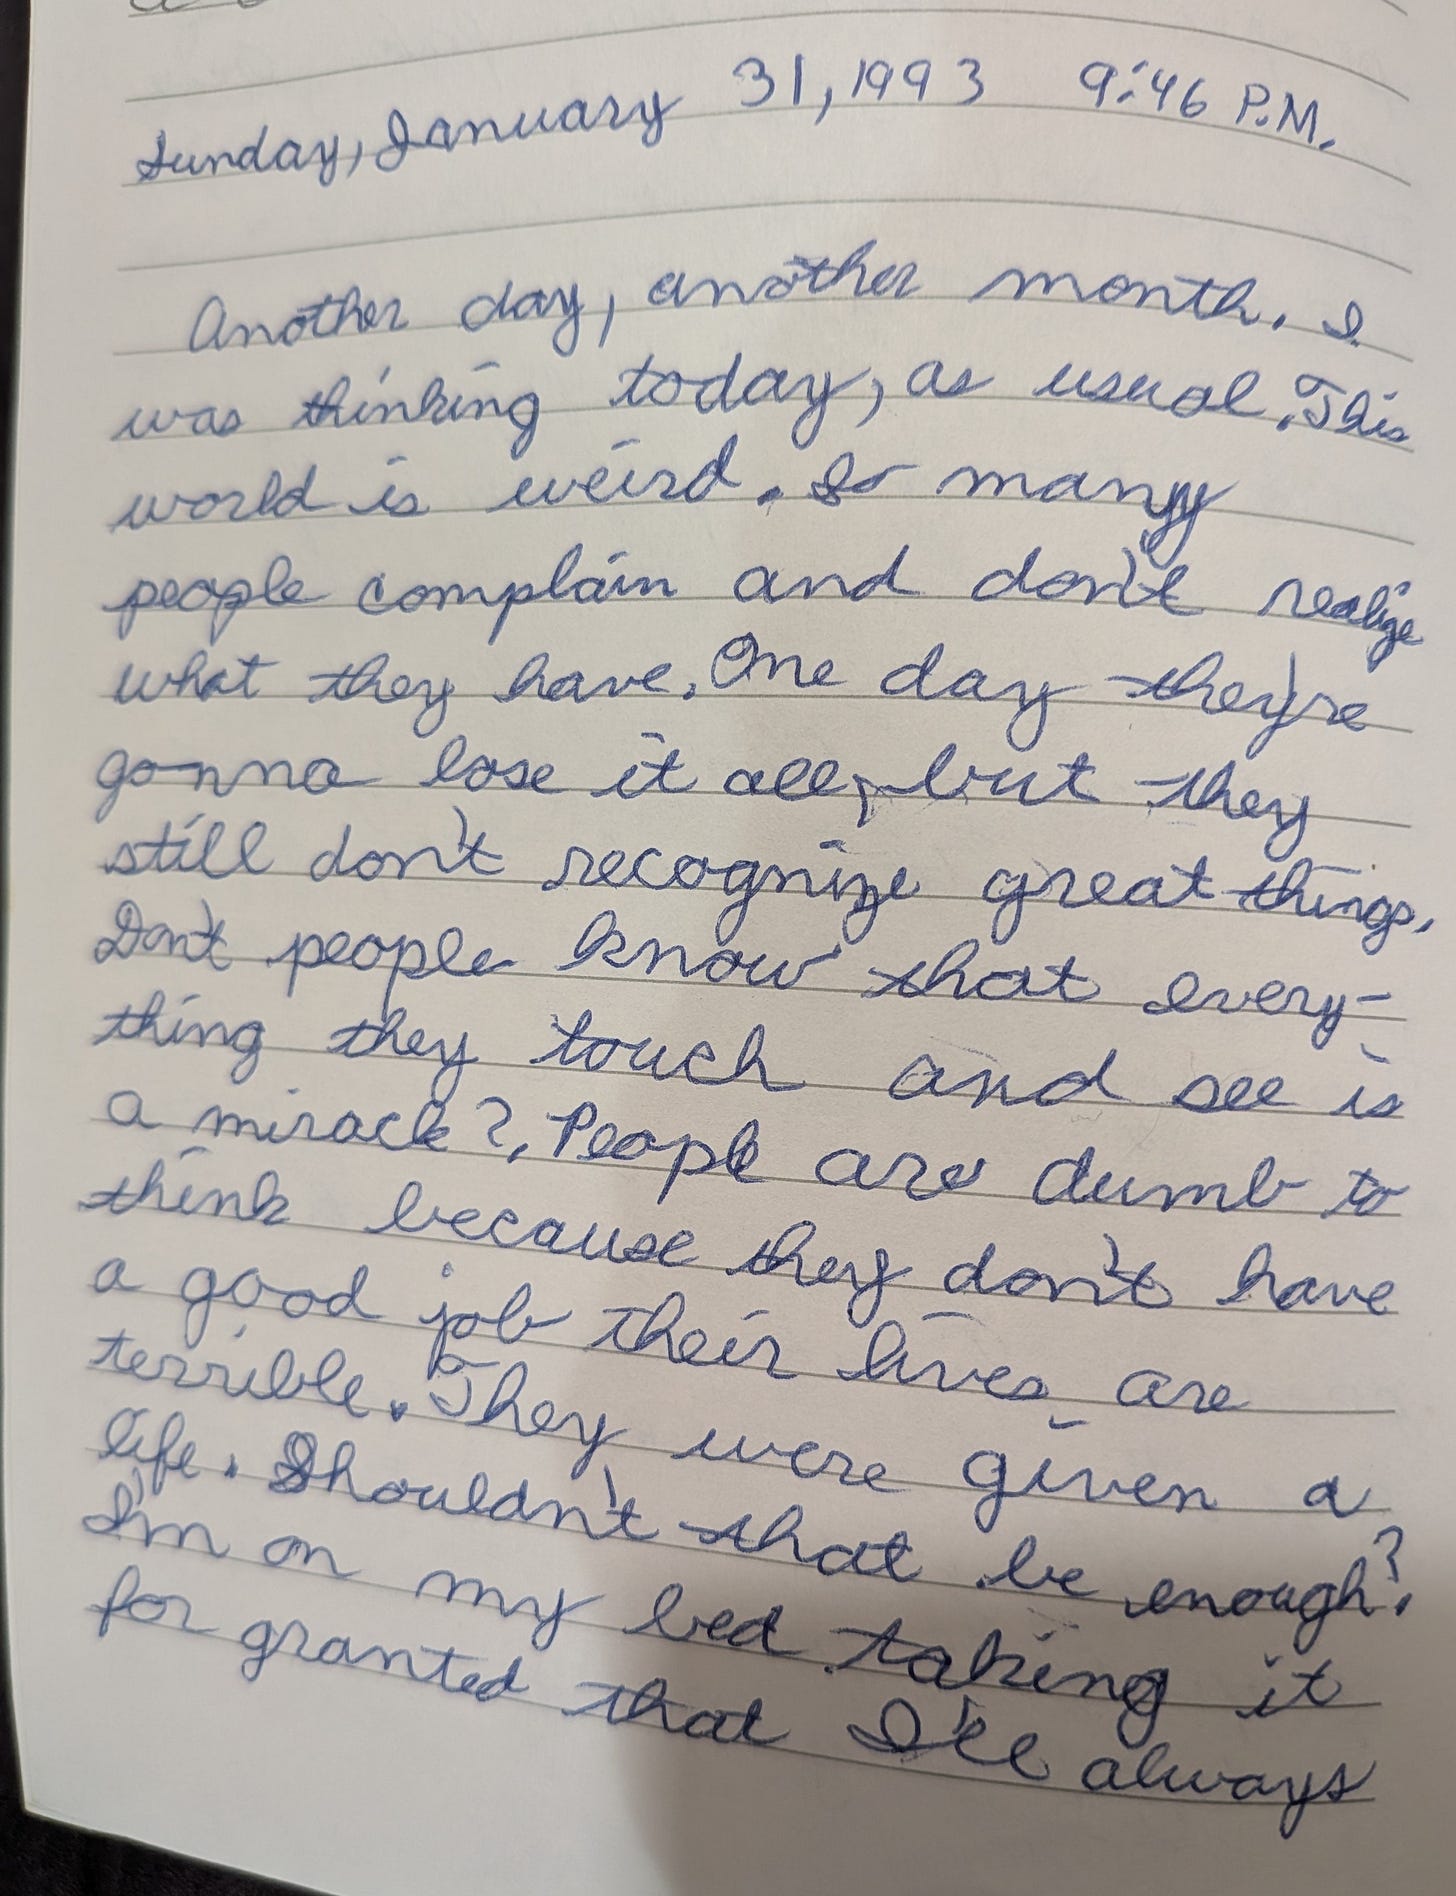 Sunday, January 31, 1993 9:46 P.M.
Another day, another month. I
was thinking today, as usual. This
world is weird. So many
people complain and don't realize
what they have. One day they're
gonna lose it all, but they
still don't recognize great things.
Don't people know that every-
thing they touch and see is
a miracle?. People are dumb to
think because they don't have
a good job their lives are
terrible. They were given a
life. Shouldn't that be enough?.
I'm on my bed taking it
for granted that I'll always